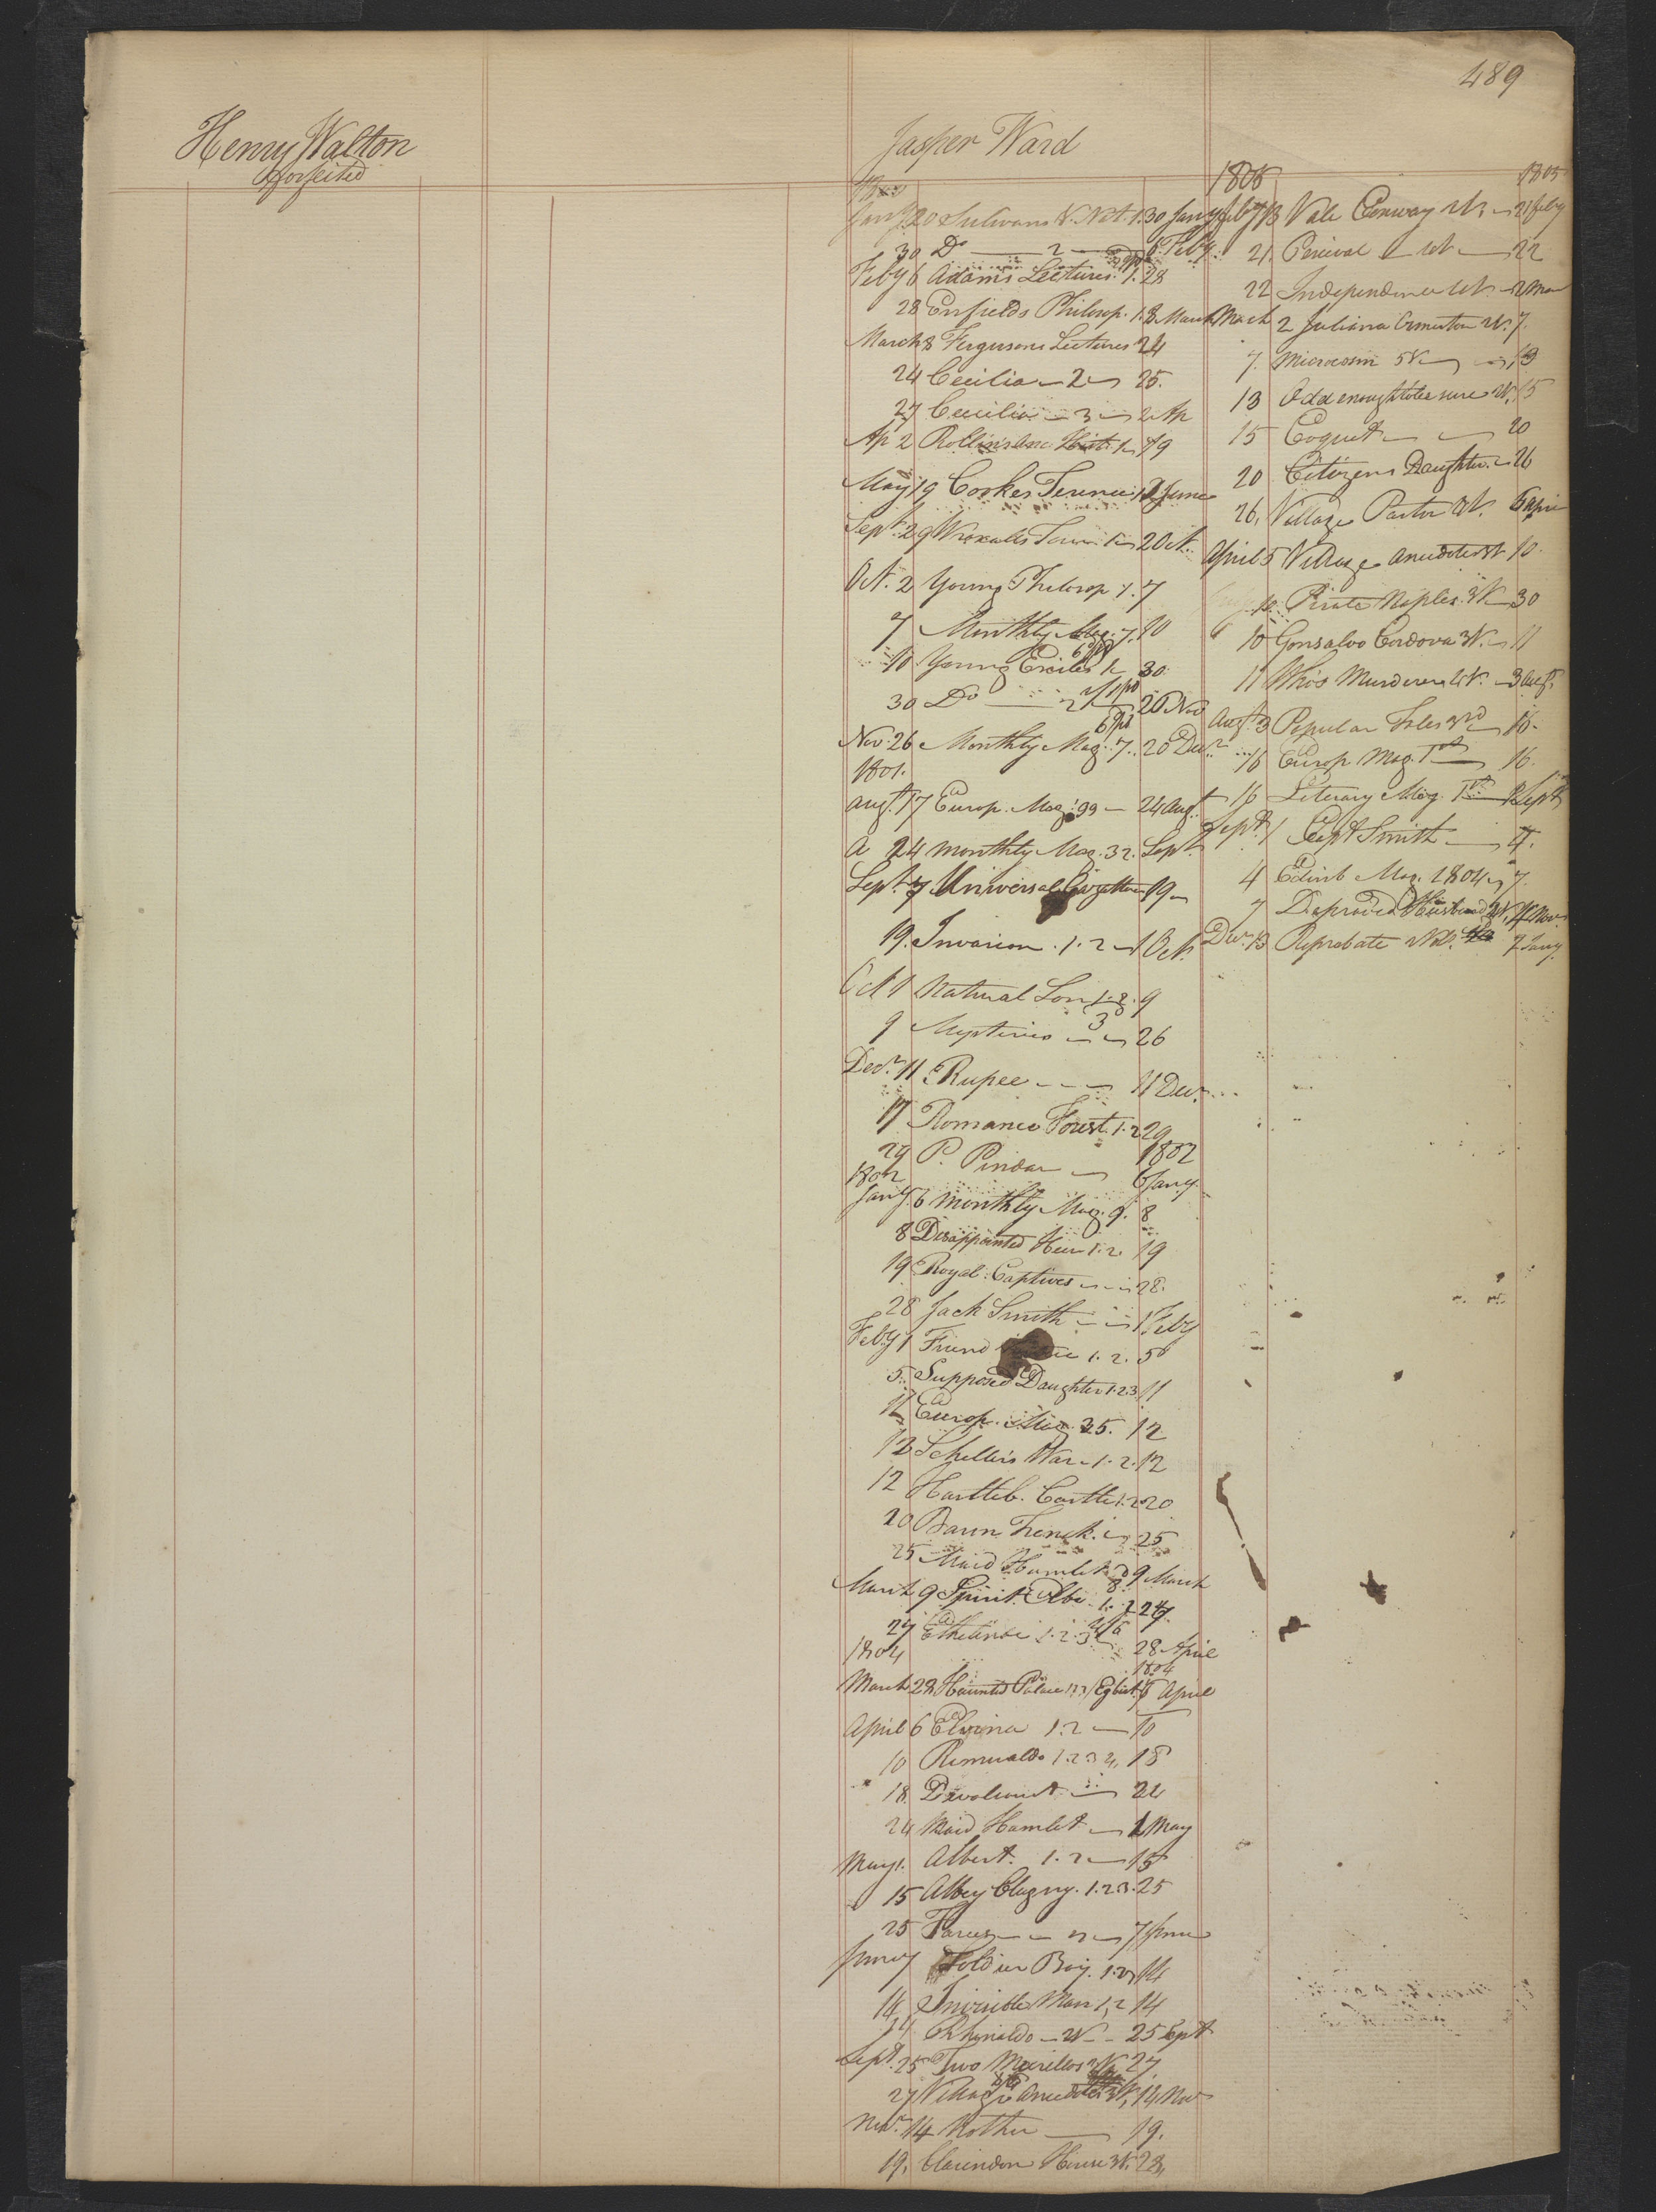 489
Henry Walton
forfeited
Jasper Ward
Jany 20 Sulivans V. Nat 1. 30 Jany
30 Do 2 6 Feby
Feby 6 Adams Lectures 1. 28
28 Enfields Philosop. 1. 8 March
March 8 Fergusons Lectures 24
24 Cecilia 2 25.
27 Cecilia 3 2 Ap
Ap 2 Rollins Anc. Hist. 1 19
May 19 Cookes Terence 1 June
Sept. 29 Wraxalls Tour 1 2 Oct.
Oct. 2 Young Philosop 1. 7
7 Monthly Mag. 7. 10
10 Young Exiles 1 30
30 Do 2 20 Nov
Nov. 26 Monthly Mag. 7. 20 Decr
1801.
Augt. 17 Europ. Mag. 99 24 Augt.
A 24 Monthly Mag. 32. Sept.
Sept. 7 Universal Gazetteer 19
19. Invasion. 1. 2 1 Oct.
Oct 1 Natural Son 1. 2. 9
9 Mysteries 3 26
Decr. 11 Rupee 11 Decr.
17 Romance Forest. 1. 2 29
29 P. Pindar 1802
6 Jany.
1802
Jany. 6 Monthly Mag. 9. 8
8 Disappointed Heir 1. 2 19
19 Royal Captives 28.
28 Jack Smith 1 Feby
Feby 1 Friend 1. 2. 5
5. Supposed Daughter 1 2 3 11
11 Europ. Mag. 35. 12
12 Schillers War 1. 2. 12
12 Hartleb. Castle 1. 2 20
20 Baron Trenck. 25
25 Maid Hamlet 9 March
March 9 Spirit Elbe 1. 2 27.
27 Ethelinde 1. 2. 3 28 April
1804
1804
March 28 Haunted Palace 1 2 3 / Egbert 6 April
April 6 Elvina 1. 2 10
10 Romualdo 1. 2 3 4. 18
18. Devoliant 24
24 Maid Hamlet 1 May
May 1. Albert. 1. 2 15
15 Abbey Clugny. 1. 2 3. 25
25 7 June
June 7 Soldier Boy. 1. 2 14
14 Invisible Man 1, 2 14
14 Rhinaldo 2V 25 Sept
Sept. 25 Two Marillos 2V. 27
27 Village Anecdotes 3V. 14 Nov
Novr. 14 Mother 19.
19. Clarendon House 3V. 28.
1805 1805
Feby 13 Vale Conway 2V. 21 Feby
21. Percival 4V 22
22 Independence 4V. 2 Mar
March 2 Juliana Ormeston 2V. 7.
7. Microcosm 5V 13
13 Odd enough to be sure 2V. 15
15 Coquet 20
20 Citizens Daughter. 26
26. Village Pastor 2V. 5 Apri
April 5 Village Anecdotes 3V 10.
10. Pirate Naples. 3V 30
10 Gonsalvo Cordova 3V. 11
11 Who's Murderer 4V. 3 Augt.
Augt. 3 Popular Tales 3rd 16.
16 Europ Mag. 1st 16.
16 Literary Mag. 1st 1 Sept
Sept. 1 Capt Smith 4.
4 Edinb Mag. 1804 7.
7 Depraved Husband 2V. 11 Nov
Decr. 13 Reprobate 2 Vol. 7 Jany.